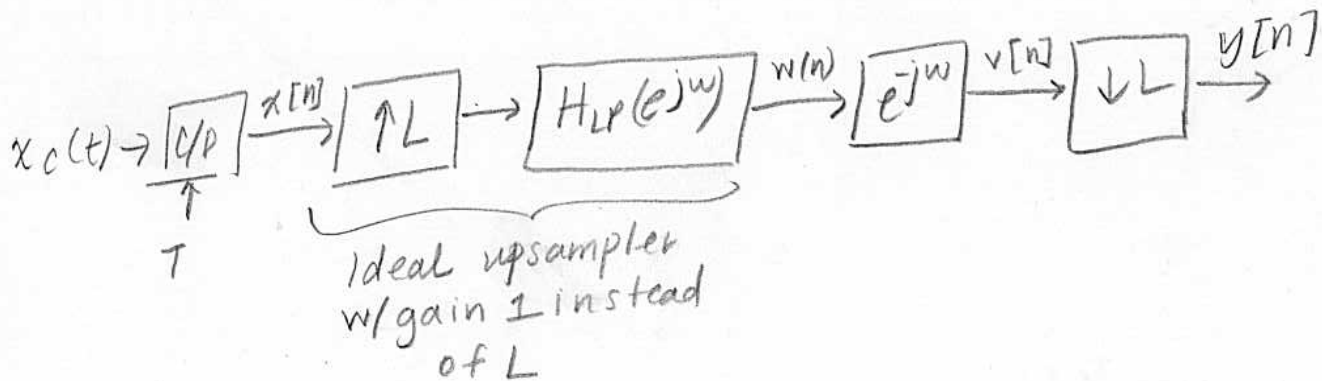 x_c(t) → C/D x[n] ↑L → H_LP(e^jω) w(n) e^-jω v[n] ↓L y[n]
T
Ideal upsampler
w/gain 1 instead
of L